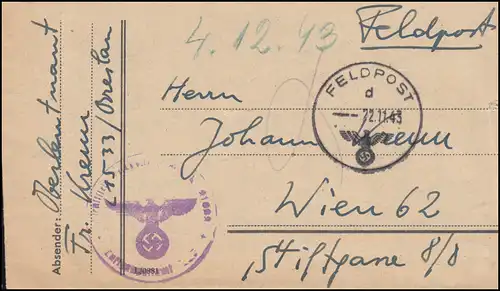 4.12.43
Feldpost
FELDPOST
d
22.11.43
Herrn
Johann Krenn
Wien 62
Stiftgasse 8/8
Absender: Oberleutnant
Fr. Krenn
L 1533/Breslau